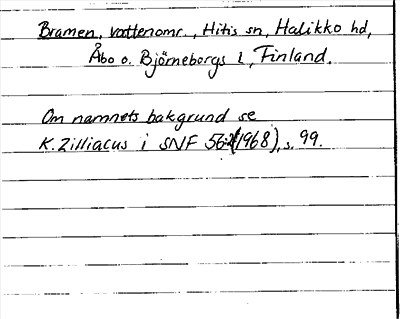 Bramen, vattenomr., Hitis sn, Halikko hd,
Åbo o. Björneborgs l, Finland.
Om namnets bakgrund se
K. Zilliacus i SNF 56 (1968), s. 99.